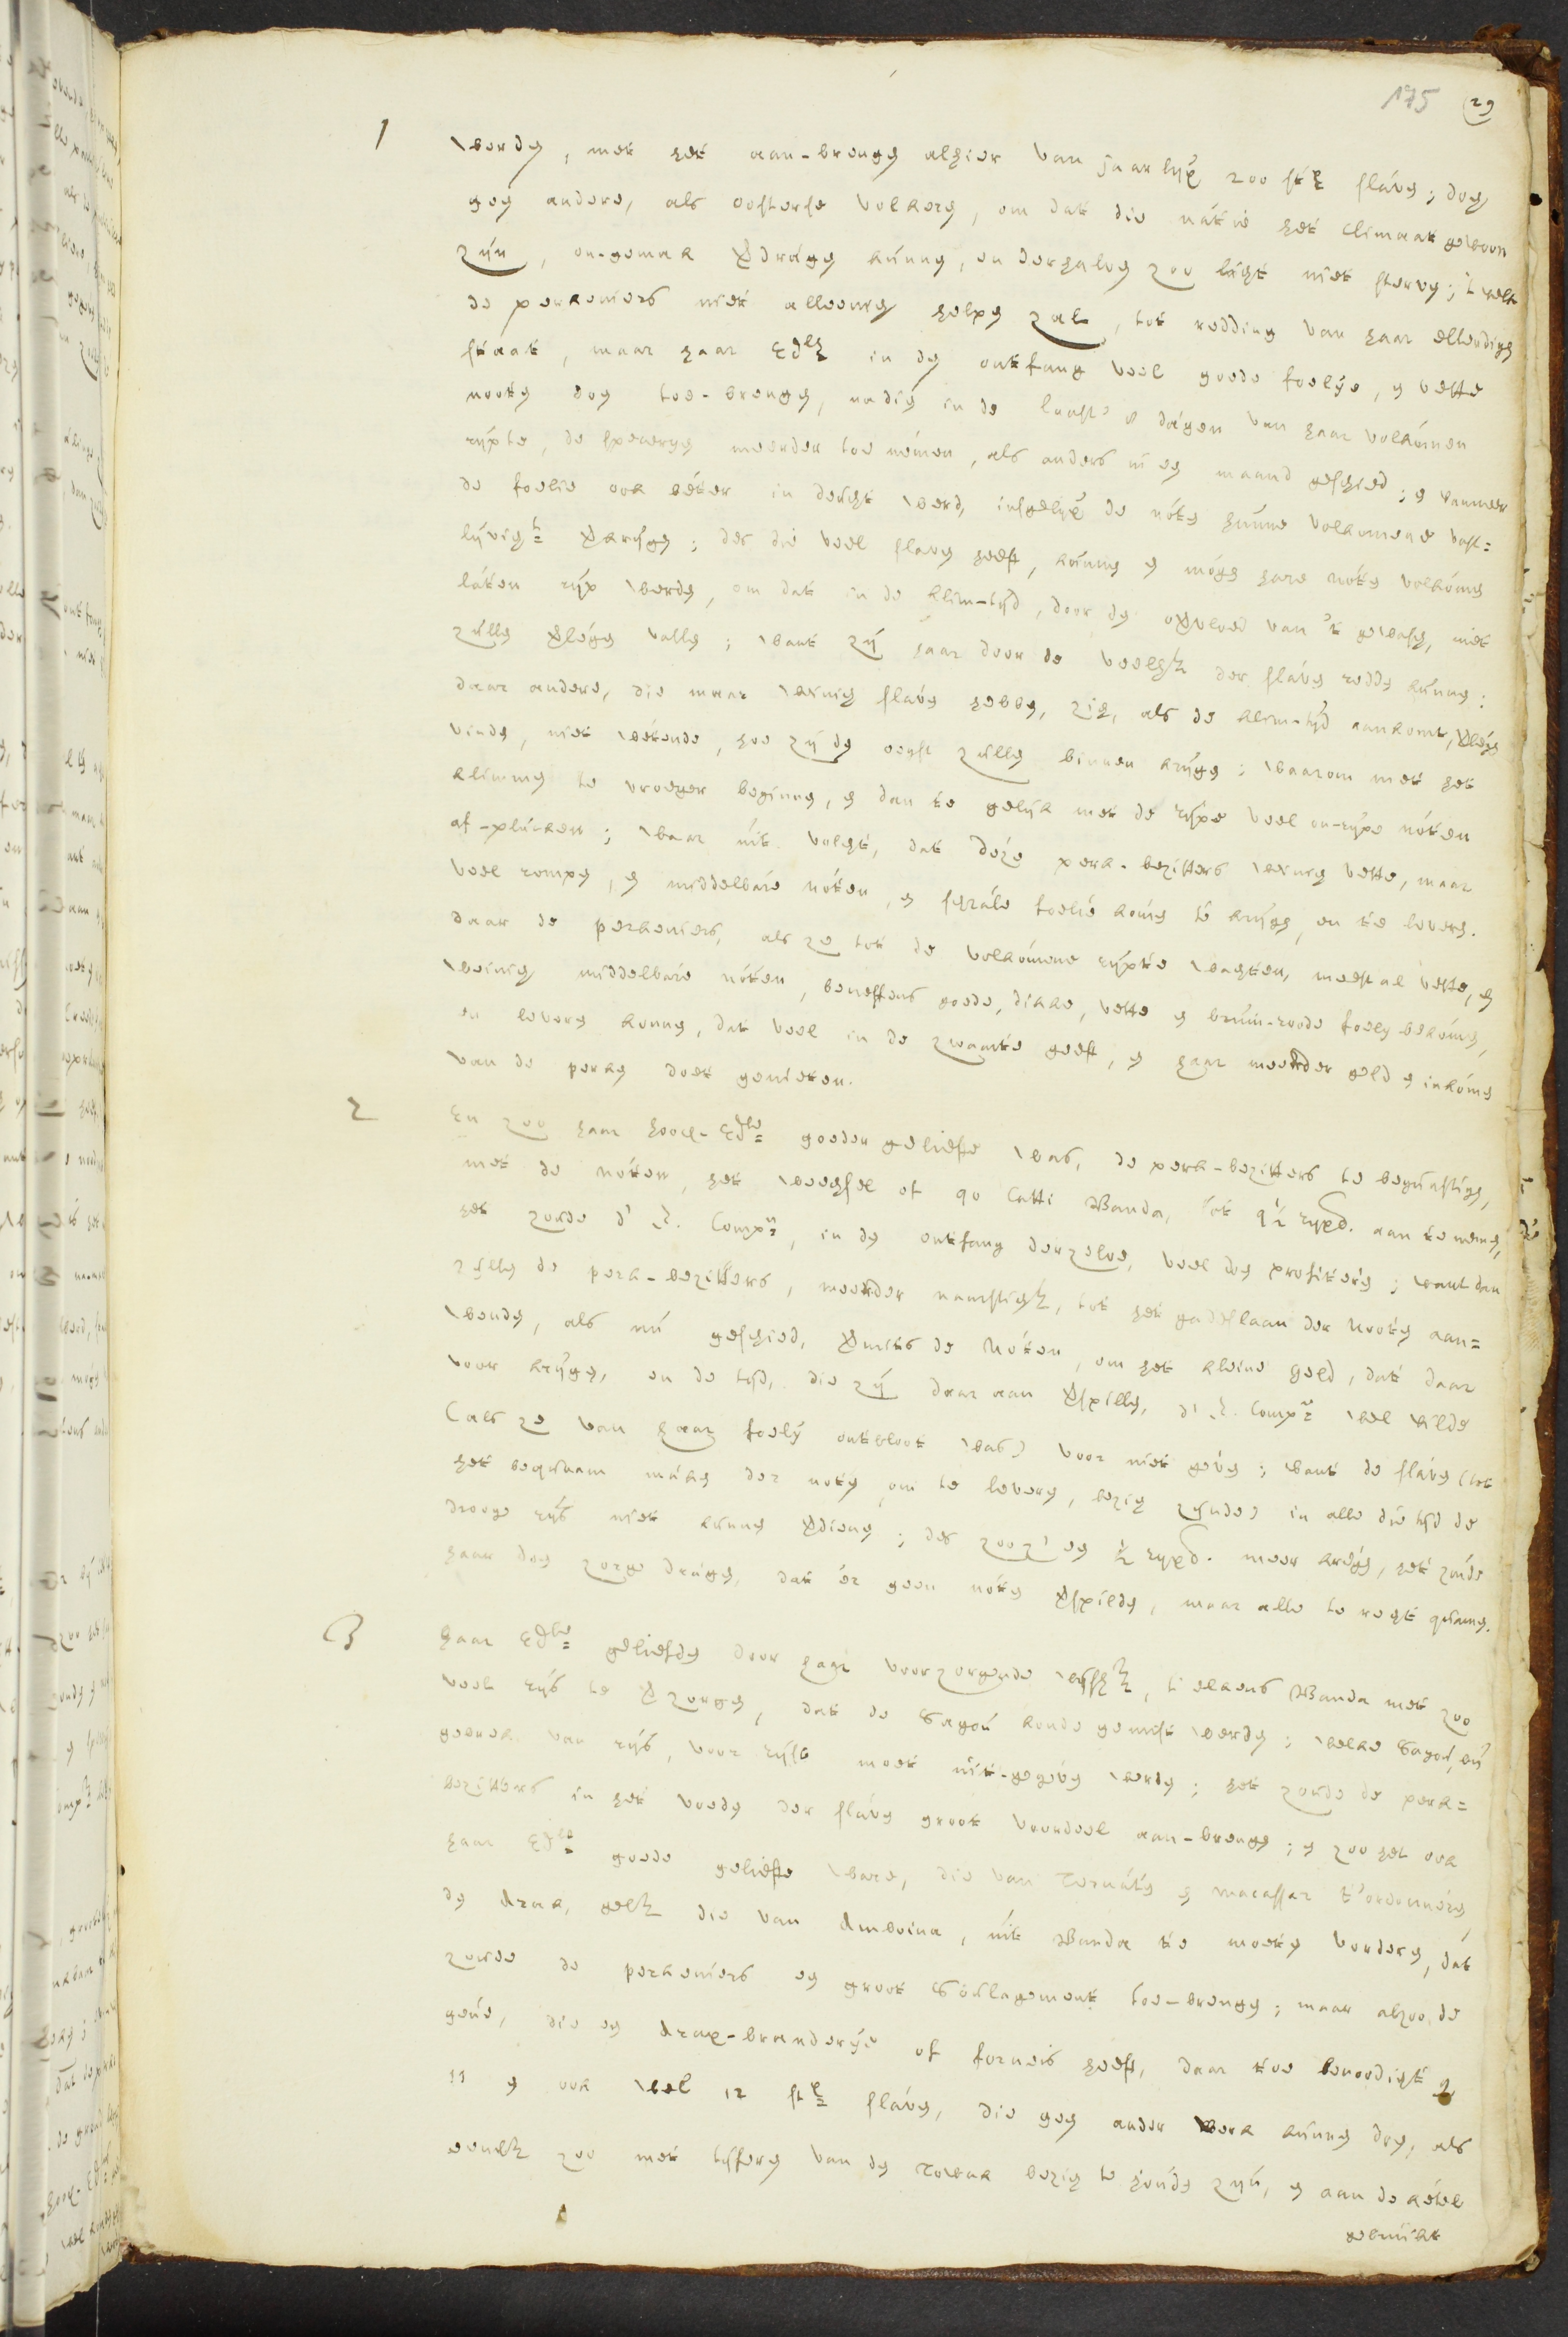 175 29
1 werden, met het aan-brengen alhier van jaarlijx 200 stx slaven; dog
gen andere, als oosterse volkeren, om dat die natie het climaat gewoon
zijn, on-gemak verdragen kunnen, en derhalven zoo ligt niet sterven; 't welk
de perkeniers niet alleenig helpen zal, tot redding van haar ellendigen
staat, maar haar Edlh in den ontfang veel goede foelye, en vette
nooten doen toe-brengen, nadien in de laaste 8 dagen van haar volkomen
rijpte, de speceryen meerder toe nemen, als anders in een maand geschied; en wanneer
de foelie ook beter in deucht werd, insgelijx de noten hunne volkomene vast=
lijvight verkrijgen; des die veel slaven heeft, kunnen en mogen hare noten volkomen
laten rijp werden, om dat in de klim-tijd, door den overvloed van 't gewasch, niet
zullen verlegen vallen; want zij haar door de veelht der slaven redden kunnen:
daar andere, die maar weinig slaven hebben, zig, als de klim-tijd aankomt, verlegen
vinden, niet wetende, hoe zij den oegst zullen binnen krijgen; waarom met het
klimmen te vroeger beginnen, en dan te gelijk met de rijpe veel on-rijpe noten
af-plucken; waar uit volght, dat deze perk-bezitters weinig vette, maar
veel rompen, en middelbare noten, en schrale foelie komen te krijgen, en te leveren.
daar de perkeniers, als ze tot de volkomene rijpte wachten, meest al vette, en
weinig middelbare noten, beneffens goede, dikke, vette en bruin-roode foely bekomen,
en leveren konnen, dat veel in de zwaarte geeft, en haar meerder geld en inkomen
van de perken doet genieten.
2 En zoo haar hoog-Edle goeder geliefte was, de perk-bezitters te begunstigen,
met de noten, het weechsel of 90 Catti Banda, tot 9½ ryxd. aan te nemen,
het zoude d' E. Comp., in den ontfang derzelve, veel doen profiteren; want dan
zullen de perk-bezitters, meerder naarstight, tot het gadeslaan der Nooten aan=
wenden, als nu geschied, vermits de Noten, om het kleine geld, dat daar
voor krijgen, en de tijd, die zij daar aan verspillen, d' E. Comp. wel wilde
(als ze van haar foely ontbloot was) voor niet geven; want de slaven (tot
het bequaam maken der noten, om te leveren, bezig zijnde) in alle die tijd de
drooge rijs niet kunnen verdienen; des zoo z' een ½ ryxd. meer kregen, het zoude
haar doen zorge dragen, dat 'er geen noten verspilden, maar alle te regt quamen.
3 haar Edle geliefden door haar voorzorgende wijsht, t' elkens Banda met zoo
veel rijs te verzorgen, dat de Sagou konde gemist werden; welke Sagou, bij
gebrek van rijs, voor rijst moet uit-gegeven werden; het zoude de perk=
bezitters in het voeden der slaven groot voordeel aan-brengen; en zoo het ook
haar Edle goede geliefte ware, die van Ternaten en Macassar t' ordonneren,
den Arak, gelh die van Amboina, uit Banda te moeten vorderen, dat
zoude de perkeniers een groot Soulagement toe-brengen; maar alzoo de
gene, die een Arax-branderije of forneis heeft, daar toe benoodigt
11 en ook wel 12 stx slaven, die gen ander werk kunnen doen, als
eenelh zoo met tijferen van den Towak bezig te houden zijn, en aan de ketel
gebruikt